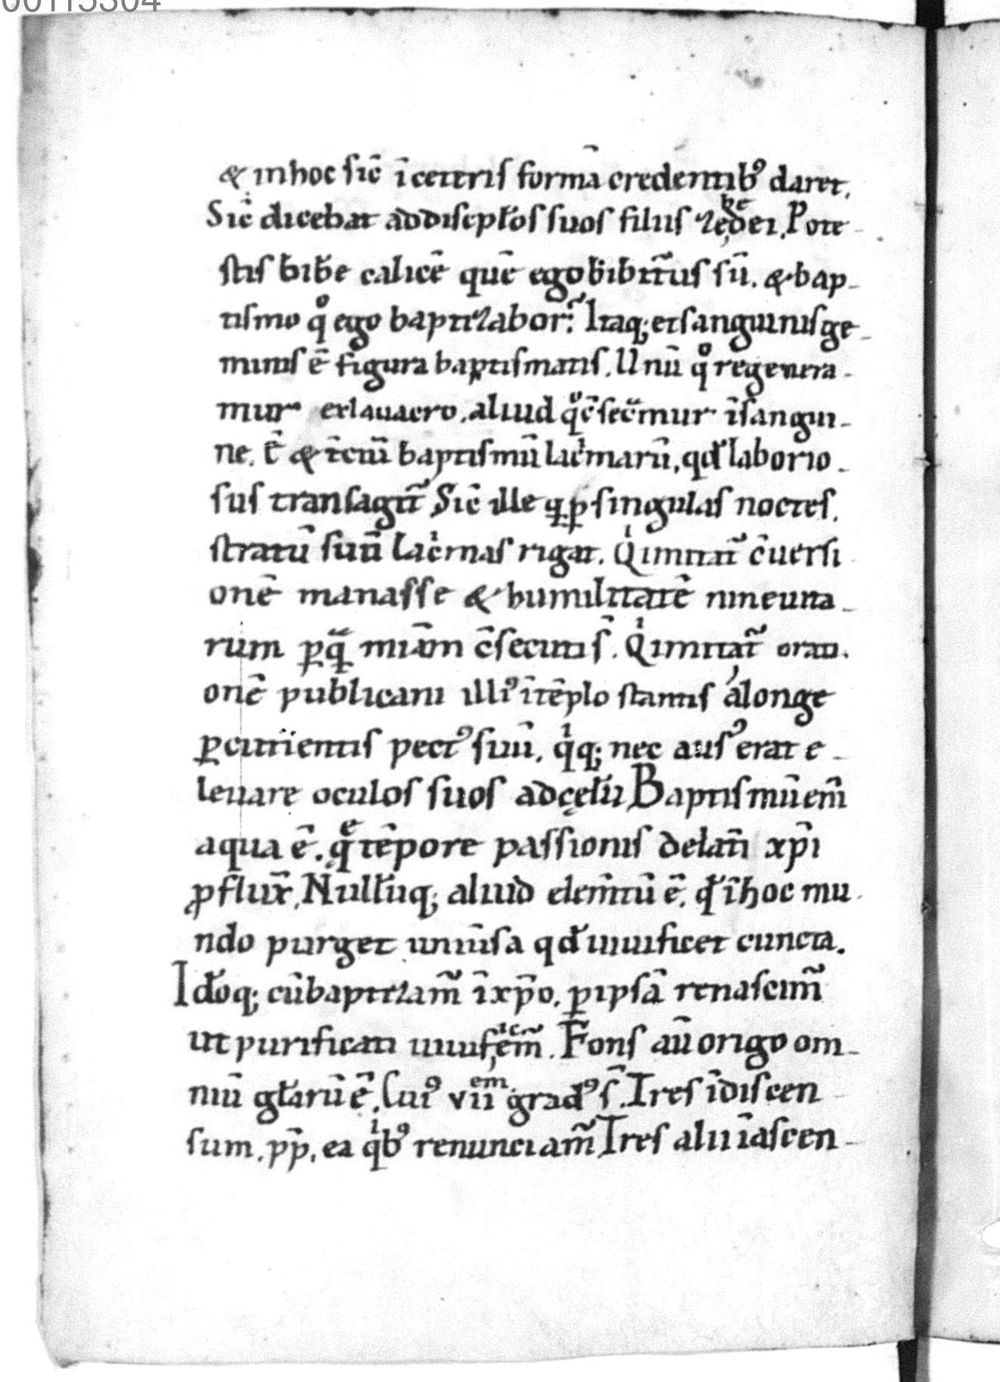 00115304
& inhoc sic̄ īceteris formā credentibꝰ daret.
Sic̄ dicebat addiscpłos suos filiis zebedei. Pote
stis bibe calicē quē ego bibiturus sū. & bap
tismo q̊ ego baptizabor. Itaq; et sanguinis ge
minus ē figura baptismatis. Unū q̊ regenera
mur ex lavacro. aliud q̊ c̄secramur īsangui
ne. Ē & t̄ciū baptismū lacͥmarū. qđ laborio
sus transagit̄ Sic̄ ille q̇ ꝑ singulas noctes.
stratū suū lacͥmis rigat. Qͥ imitat̄ c̄uersi
onē manasse & humilitatē nineuita
rum ꝑ quā miām c̄secuti s̄. Qͥ imitat̄ orati
onē publicani illiꝰ ītēplo stantis alonge
ꝑcutientis pectꝰ suū. qͥq; nec ausꝰ erat e
leuare oculos suos adcęłū Baptismū em̄
aqua ē. quę tēpore passionis delatī xp̄i
ꝓflux̄. Nullūq; aliud elem̄tū ē. qđ īhoc mu
ndo purget uniūsa qđ uiuificet cuncta.
Idōq; cū baptizam̄ īxp̄o. ꝑ ipsā renascim̄
ut purificati uiuificem̄. Fons aū origo om
niū gr̄arū ē. Cuiꝰ vii em gradꝰ s̄. Tres īdiscen
sum. ꝓp̄. ea qͥbꝰ renunciam̄ Tres alii īascen